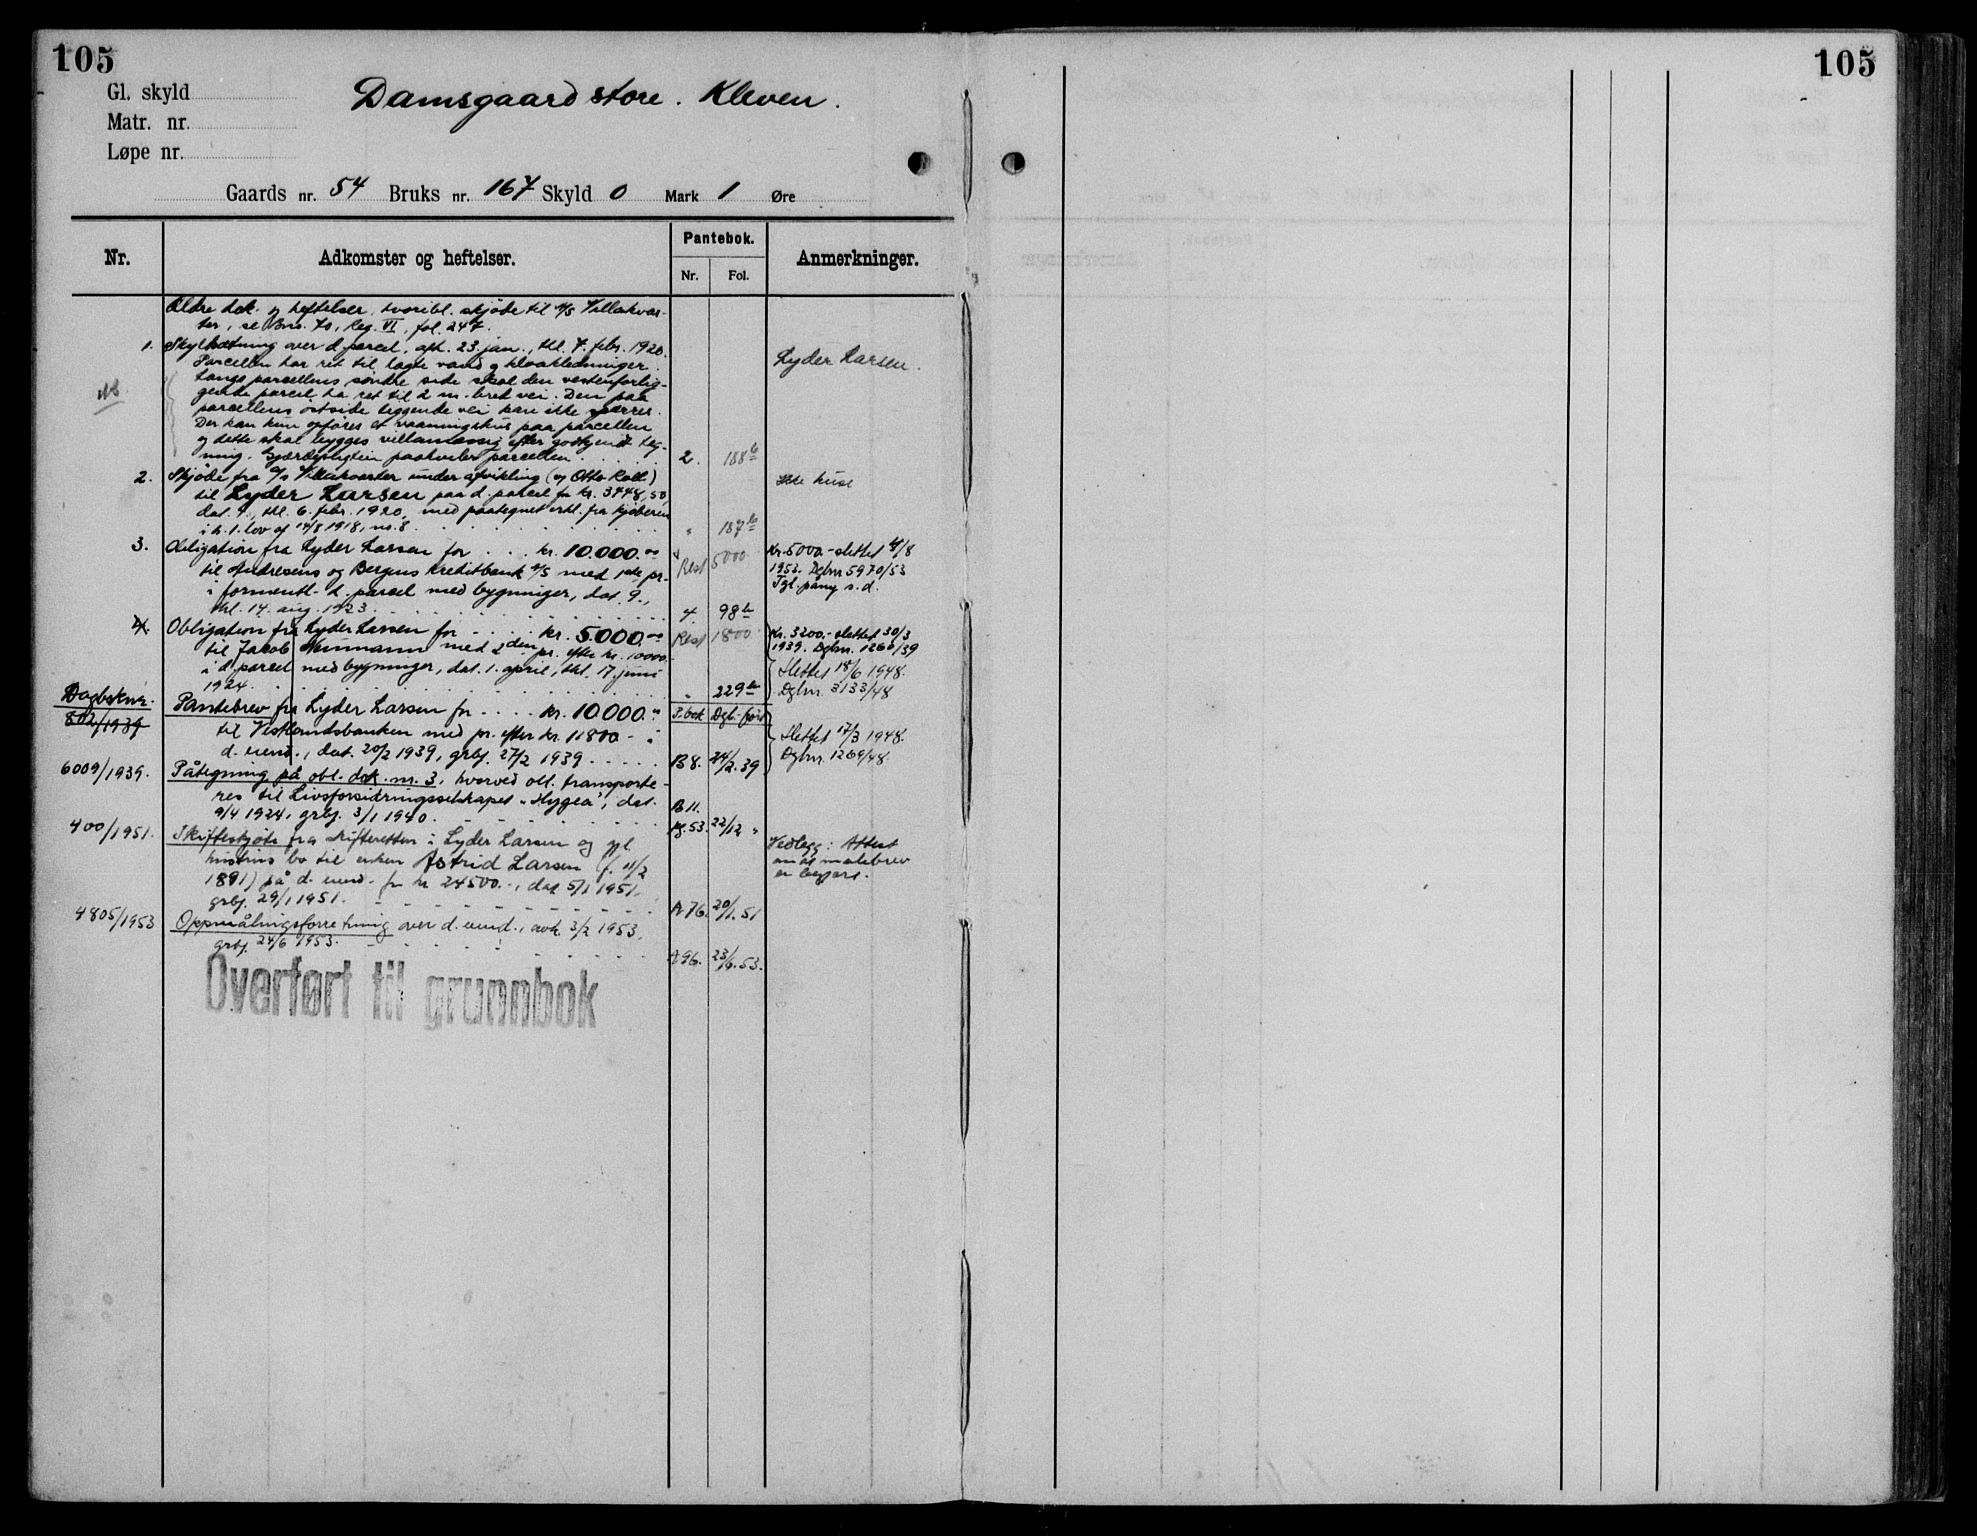 105
105
Gl. skyld
Matr. nr.
Løpe nr.
Damsgaard store. Kleven.
Gaards nr. 54 Bruks nr. 167 Skyld 0 Mark 1 Øre
Nr. Adkomster og heftelser. Pantebok. Anmerkninger.
Nr. Fol.
Ældre dok. og heftelser, hvoribl. skjøde til A/S Villakvar-
ter, se Bno. 70, Reg. VI, fol. 247.
1. Skyldsætning over d. parcel, afh. 23. jan., thl. 7. febr. 1920.
Parcellen har ret til lagte vand og kloakledninger.
Lyder Larsen.
Langs parcellens søndre side skal den vestenforlig-
gende parcel ha ret til 2 m. bred vei. Den paa
NB
parcellens østside liggende vei kan ikke sperres.
Der kan kun opføres et vaaningshus paa parcellen
og dette skal bygges villamæssig efter godkjendt teg-
ning. Gjærdepligten paahviler parcellen 2. 188 b
2. Skjøde fra A/S Villakvarter under afvikling (og Otto Roll)
til Lyder Larsen paa d. parcel for kr. 3748,50,
Ikke huse
dat. 9., thl. 6. febr. 1920, med paategnet erkl. fra kjøberen
i h. t. lov af 14/8 1918, no. 8 " 187 b
3. Obligation fra Lyder Larsen for kr. 10.000.00 Rest 5000 Kr. 5000.- slettet 4/8
til Andresens og Bergens Kreditbank A/S med 1ste pr. 1953. Dgbnr 5970/53
i formentl. d. parcel med bygninger, dat. 9., Tgl. påny s.d.
thl. 14. aug. 1923 4. 98 b
4. Obligation fra Lyder Larsen for kr. 5.000.00 Rest 1800 Kr. 3200.- slettet 30/3
til Jakob Neumann med 2den pr. efter kr. 10000 1939. Dgbnr. 1260/39
i d. parcel med bygninger, dat. 1. april, thl. 17. juni Slettet 18/6 1948.
1924 " 229 b Dgbnr. 3133/48
Dagboknr.
802/1939 Pantebrev fra Lyder Larsen for kr. 10.000.00 P.bok Dgb.-ført
til Vestlandsbanken med pr. efter kr. 11800 - i Slettet 17/3 1948.
d. eiend., dat. 20/2 1939, grbf. 27/2 1939 B 8. 24/2.39 Dgbnr. 1269/48
6009/1939. Påtegning på obl. dok. nr. 3, hvorved obl. transporte-
res til Livsforsikringsselskapet "Hygea", dat. B 11.
9/4 1924, grbf. 3/1 1940. 22/12 "
400/1951. Skifteskjøte fra skifteretten i Lyder Larsen og gjl. Vedlegg: Attest
hustrus bo til enken Astrid Larsen (f. 11/2 om at målebrev
1891) på d. eiend. for kr 24500.-, dat 5/1 1951, er begjært.
grbf. 29/1 1951. A 76. 20/1.51
4805/1953 Oppmålingsforretning over d. eiend., avh. 3/2 1953,
grbf. 24/6 1953. A 96. 23/6.53.
Overført til grunnbok